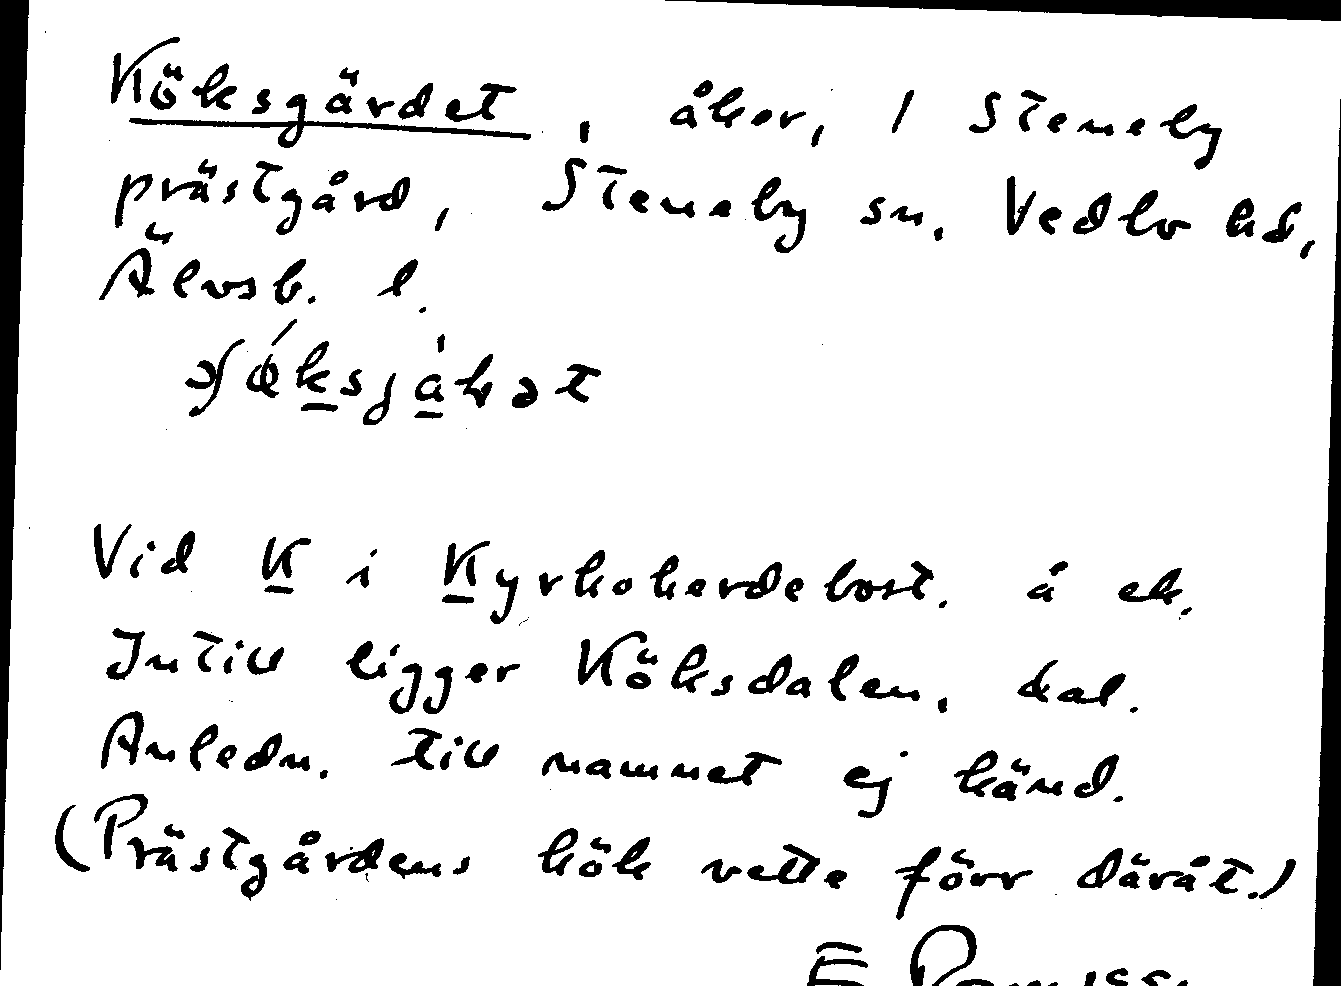 Köksgärdet, åker, / Steneby
prästgård, Steneby sn, Vedbo hd,
Älvsb. l.
Vid K i Kyrkoherdebost. å ek.
Intill ligger Köksdalen, dal.
Anledn. till namnet ej känd.
(Prästgårdens kök vette förr däråt.)
E